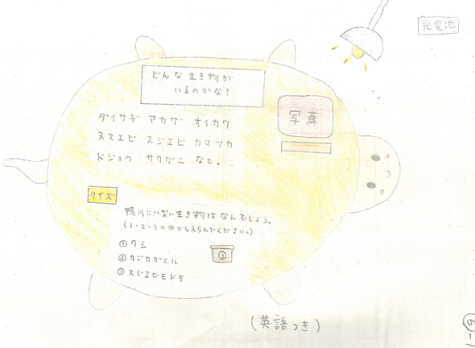 光電池
どんな生き物が
いるのかな?
写真
ダイサギ アカザ オイカワ
ヌマエビ スジエビ カマツカ
ドジョウ サワガニ など。
クイズ
鴨川にいない生き物はなんでしょう。
(1・2・3の中からえらんでください。)
①ワシ
②カジカガエル
③スジエビモドキ
(英語つき)